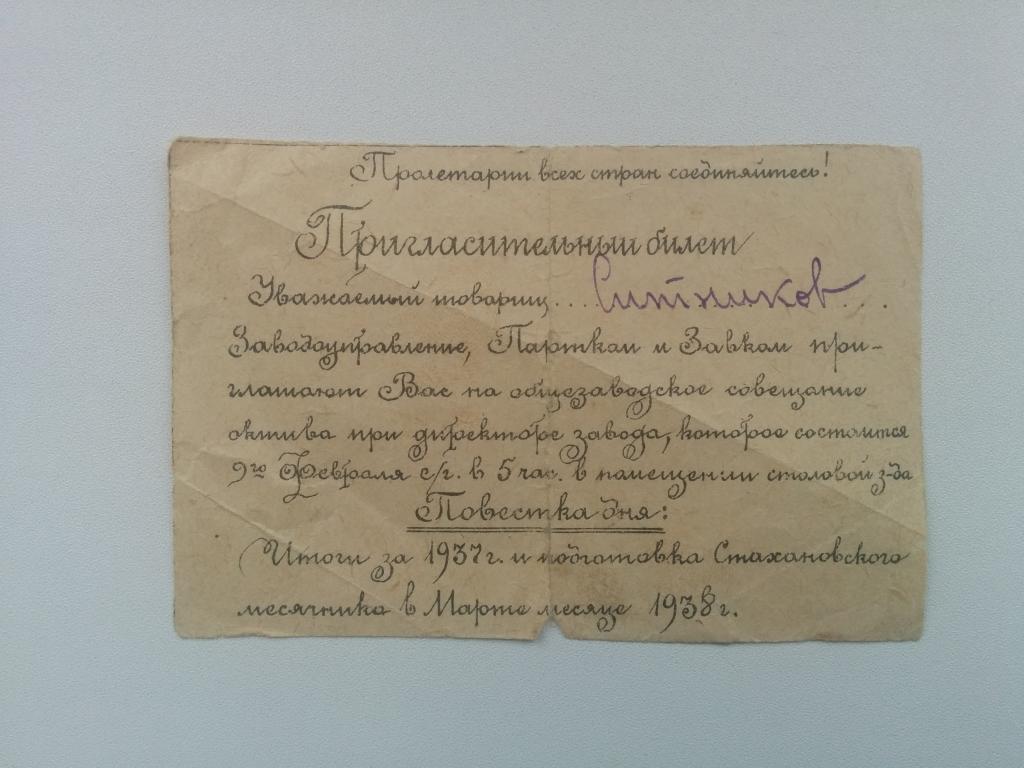 Пролетарии всех стран соединяйтесь!
Пригласительный билет
Уважаемый товарищ... Ситников...
Заводоуправление, Партком и Завком при-
глашают Вас на общезаводское совещание
актива при директоре завода, которое состоится
9го Февраля с/г. в 5 час. в помещении столовой з-да
Повестка дня:
Итоги за 1937г. и подготовка Стахановского
месячника в Марте месяце 1938г.